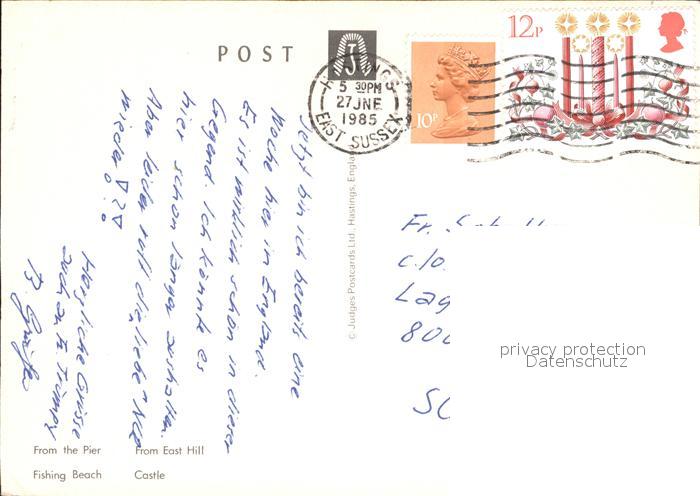 POST
HASTINGS
5 30PM
27 JNE
1985
EAST SUSSEX
10P
12P
Jetzt bin ich bereits eine
Woche hier in England.
Es ist wirklich schön in dieser
Gegend. Ich könnte es
hier schon länger aushalten.
Aber leider ruft die liebe
wieder
Herzliche Grüsse
auch an
© Judges Postcards Ltd., Hastings, England
Fr.
c/o
Lag
800
privacy protection
Datenschutz
From the Pier
From East Hill
Fishing Beach
Castle